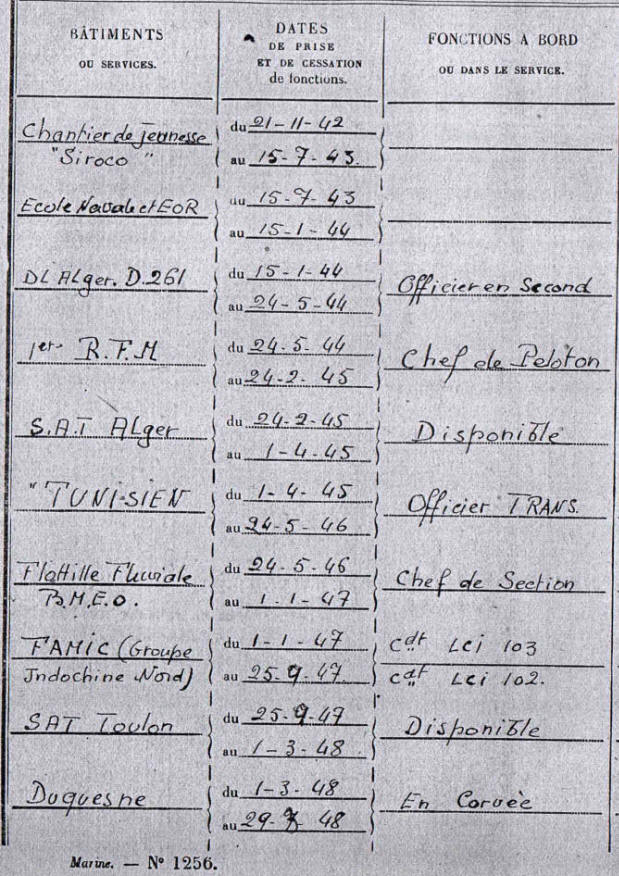 BÂTIMENTS
OU SERVICES.
DATES
DE PRISE
ET DE CESSATION
de fonctions.
FONCTIONS A BORD
OU DANS LE SERVICE.
Chantier de jeunesse
"Siroco"
du 21-11-42
au 15-7-43.
Ecole Navale et EOR
du 15-7-43
au 15-1-44
DL Alger. D.261
du 15-1-44
au 24-5-44
Officier en Second
1er R.F.M
du 24-5-44
au 24-2-45
Chef de Peloton
S.A.T Alger
du 24-2-45
au 1-4-45
Disponible
"TUNISIEN
du 1-4-45
au 24-5-46
Officier TRANS.
Flottille Fluviale
B.M.E.O.
du 24-5-46
au 1-1-47
Chef de Section
FAMIC (Groupe
Indochine Nord)
du 1-1-47
au 25-9-47
Cdt LCi 103
Cdt LCi 102.
SAT Toulon
du 25-9-47
au 1-3-48
Disponible
Duquesne
du 1-3-48
au 29- -48
En Corvée
Marine. — N° 1256.